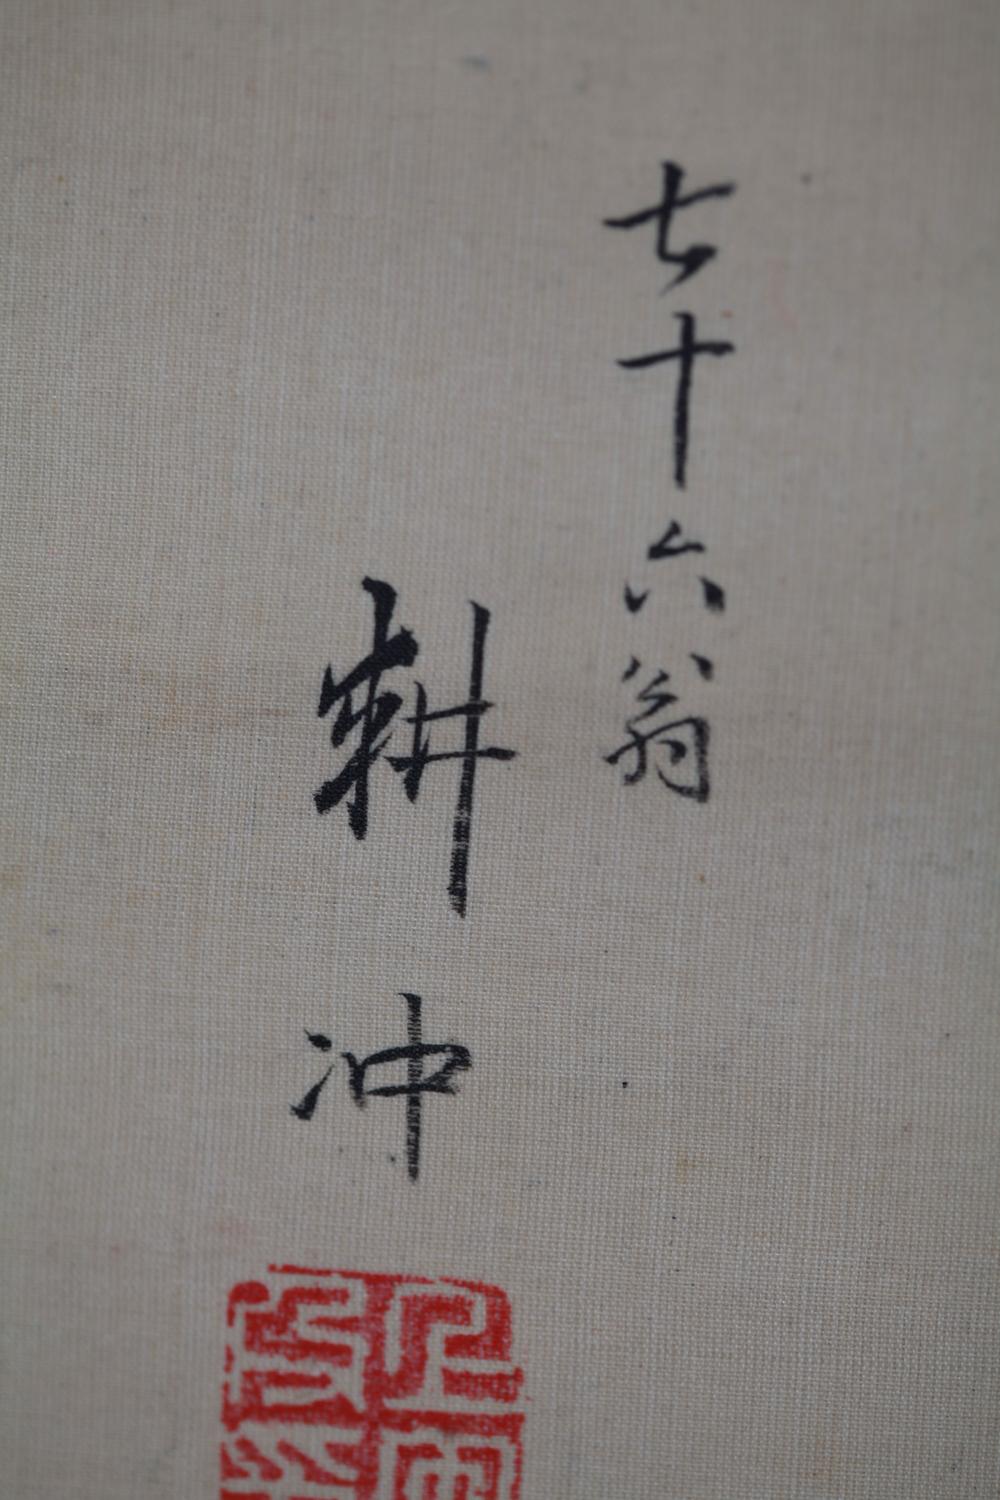 七十六翁
耕冲